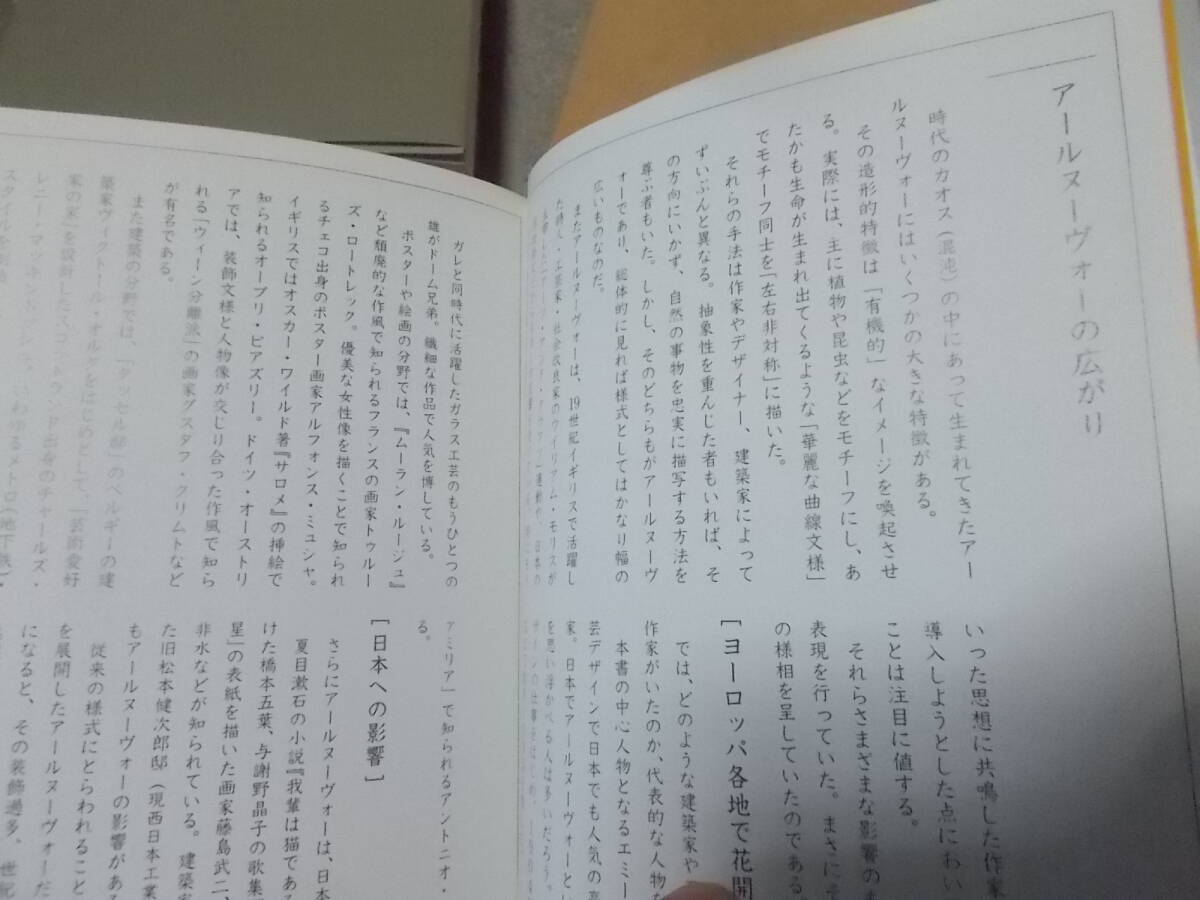 アールヌーヴォーの広がり
時代のカオス(混沌)の中にあって生まれてきたアー
ルヌーヴォーにはいくつかの大きな特徴がある。
その造形的特徴は「有機的」なイメージを喚起させ
る。実際には、主に植物や昆虫などをモチーフにし、あ
たかも生命が生まれ出てくるような「華麗な曲線文様」
でモチーフ同士を「左右非対称」に描いた。
それらの手法は作家やデザイナー、建築家によって
ずいぶんと異なる。抽象性を重んじた者もいれば、そ
の方向にいかず、自然の事物を忠実に描写する方法を
尊ぶ者もいた。しかし、そのどちらもがアールヌーヴ
ォーであり、総体的に見れば様式としてはかなり幅の
広いものなのだ。
またアールヌーヴォーは、19世紀イギリスで活躍し
た詩人・工芸家・社会改良家のウイリアム・モリスが
いった思想に共鳴した作家
導入しようとした点におい
ことは注目に値する。
それらさまざまな影響の
表現を行っていた。まさにそ
の様相を呈していたのである
[ヨーロッパ各地で花開
では、どのような建築家や
作家がいたのか、代表的な人物
本書の中心人物となるエミー
芸デザインで日本でも人気の高
家。日本でアールヌーヴォーと
を思い浮かべる人は多いだろう。
ガレと同時代に活躍したガラス工芸のもうひとつの
雄がドーム兄弟。繊細な作品で人気を博している。
ポスターや絵画の分野では、『ムーラン・ルージュ』
など頽廃的な作風で知られるフランスの画家トゥルー
ズ・ロートレック。優美な女性像を描くことで知られ
るチェコ出身のポスター画家アルフォンス・ミュシャ。
イギリスではオスカー・ワイルド著『サロメ』の挿絵で
知られるオーブリ・ビアズリー。ドイツ・オーストリ
アでは、装飾文様と人物像が交じり合った作風で知ら
れる「ウィーン分離派」の画家グスタフ・クリムトなど
が有名である。
また建築の分野では、「タッセル邸」のベルギーの建
築家ヴィクトール・オルタをはじめとして、「芸術愛好
家の家」を設計したスコットランド出身のチャールズ・
アミリア」で知られるアントニオ・
る。
[日本への影響]
さらにアールヌーヴォーは、日本
夏目漱石の小説『我輩は猫である
けた橋本五葉、与謝野晶子の歌集
星』の表紙を描いた画家藤島武二、
非水などが知られている。建築家
た旧松本健次郎邸(現西日本工業
もアールヌーヴォーの影響がある
従来の様式にとらわれること
を展開したアールヌーヴォーだ
になると、その装飾過多、世紀